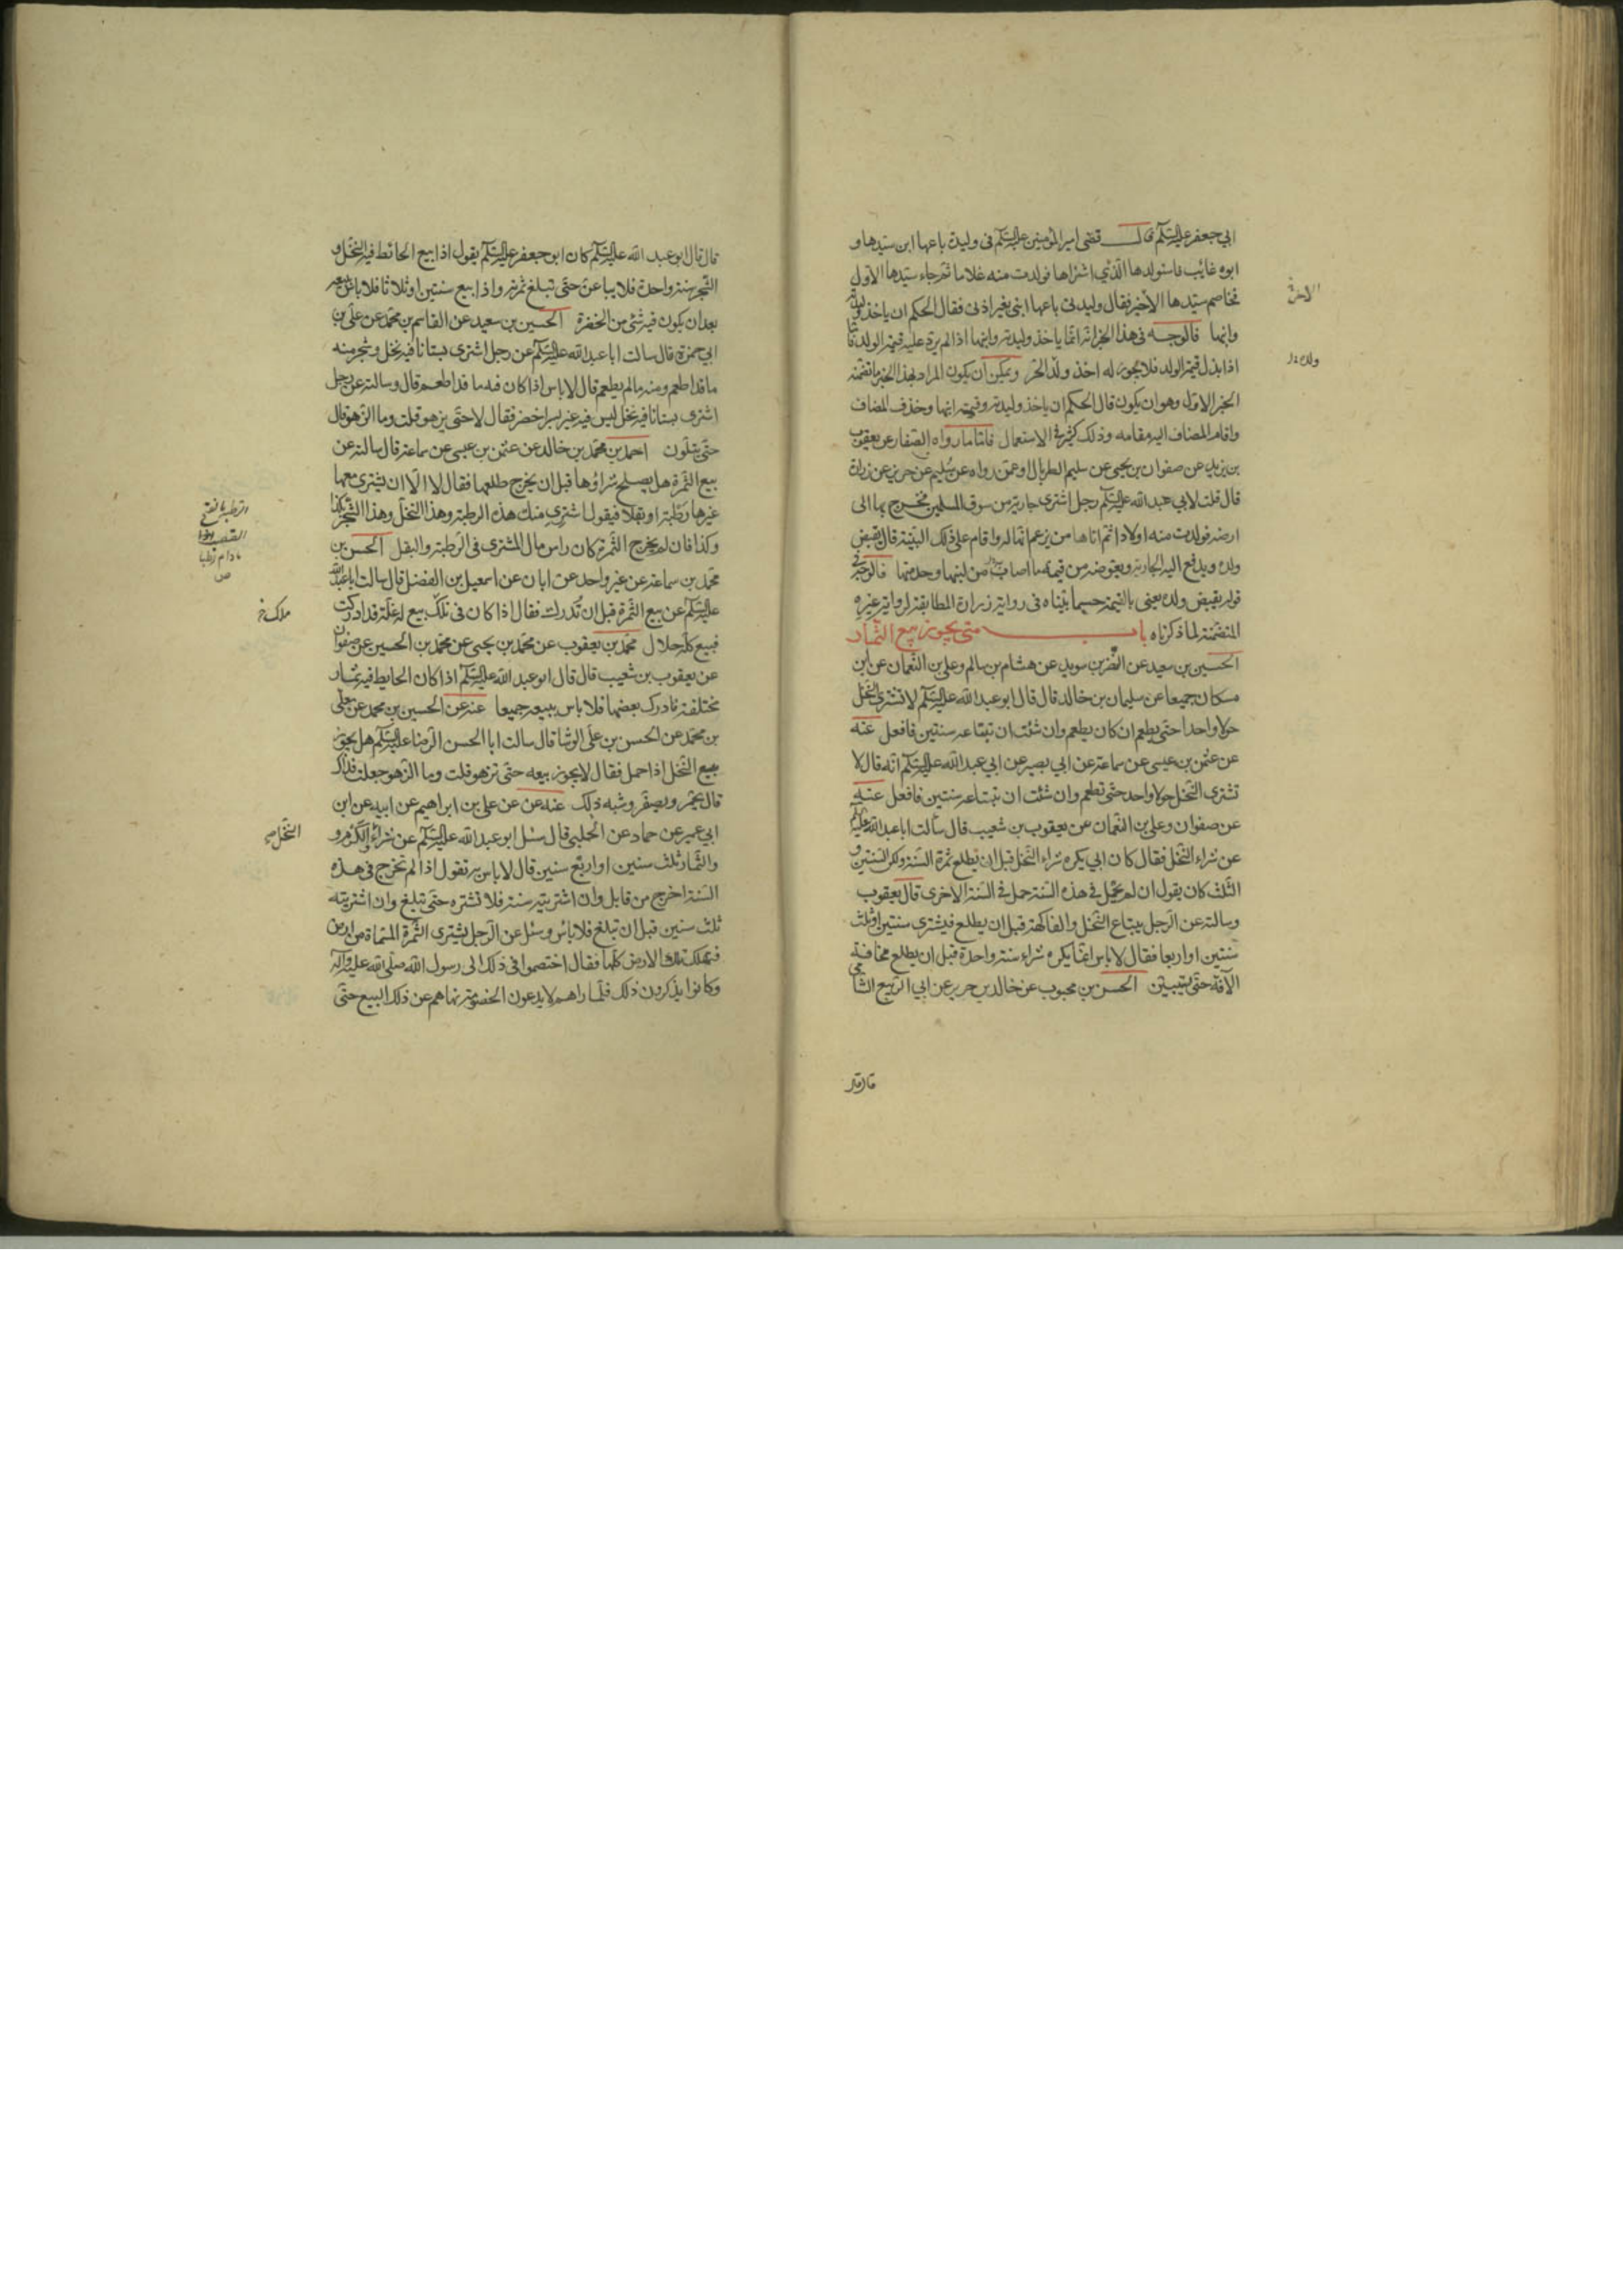 ابي جعفر عليه السلم قال قضى امير المؤمنين عليه السلم في وليدة باعها ابن سيدها و
ابوه غائب فاستولدها الذي اشتراها فولدت منه غلاما ثم جاء سيدها الاول
فخاصم سيدها الاخير فقال وليدتي باعها ابني بغير اذني فقال الحكم ان ياخذ وليدته
وابنها فالوجه في هذا الخبر انه انما ياخذ وليدته وابنها اذا لم يرد عليه قيمة الولد فاما
اذا بذل قيمة الولد فلا يجوز له اخذ ولد الحر ويمكن ان يكون المراد بهذا الخبر ما تضمنه
الخبر الاول وهو ان يكون قال الحكم ان ياخذ وليدته وقيمة ابنها وحذف المضاف
واقام المضاف اليه مقامه وذلك كثير في الاستعمال فاما ما رواه الصفار عن يعقوب
بن يزيد عن صفوان بن يحيى عن سليم الطربال او عمن رواه عن سليم عن حريز عن زرارة
قال قلت لابي عبد الله عليه السلم رجل اشترى جارية من سوق المسلمين فخرج بها الى
ارضه فولدت منه اولادا ثم اتاها من يزعم انها له واقام على ذلك البينة قال يقبض
ولده ويدفع اليه الجارية ويعوضه من قيمة ما اصاب من لبنها وخدمتها فالوجه في
قوله يقبض ولده يعني بالقيمة حسبما بيناه في رواية زرارة المطابقة لرواية غيره
المتضمنة لما ذكرناه باب متى يجوز بيع الثمار
الحسين بن سعيد عن النضر بن سويد عن هشام بن سالم وعلي بن النعمان عن ابن
مسكان جميعا عن سليمان بن خالد قال قال ابو عبد الله عليه السلم لا تشتري النخل
حولا واحدا حتى يطعم ان كان يطعم وان شئت ان تبتاعه سنتين فافعل عنه
عن عثمن بن عيسى عن سماعة عن ابي بصير عن ابي عبد الله عليه السلم انه قال لا
تشتري النخل حولا واحد حتى تطعم وان شئت ان تبتاعه سنتين فافعل عنه
عن صفوان وعلي بن النعمان عن يعقوب بن شعيب قال سألت ابا عبد الله عليه السلم
عن شراء النخل فقال كان ابي يكره شراء النخل قبل ان تطلع ثمرة السنة ولكن السنتين و
الثلث كان يقول ان لم يحمل في هذه السنة حمل في السنة الاخرى قال يعقوب
وسالته عن الرجل يبتاع النخل والفاكهة قبل ان يطلع فيشتري سنتين او ثلث
سنتين او اربعا فقال لا باس انما يكره شراء سنة واحدة قبل ان يطلع مخافة
الآفة حتى يستبين الحسن بن محبوب عن خالد بن جرير عن ابي الربيع الشامي
قال قال
قال قال ابو عبد الله عليه السلم كان ابو جعفر عليه السلم يقول اذا بيع الحائط فيه النخل و
الشجر سنة واحدة فلا يباعن حتى تبلغ ثمرته واذا بيع سنتين او ثلاثا فلا باس ببيعه
بعد ان يكون فيه شئ من الخضرة الحسين بن سعيد عن القاسم بن محمد عن علي بن
ابي حمزة قال سالت ابا عبد الله عليه السلم عن رجل اشترى بستانا فيه نخل وشجر منه
ما قد اطعم ومنه ما لم يطعم قال لا باس اذا كان فيه ما قد اطعم قال وسالته عن رجل
اشترى بستانا فيه نخل ليس فيه غير بسر اخضر فقال لا حتى يزهو قلت وما الزهو قال
حتى يتلون احمد بن محمد بن خالد عن عثمن بن عيسى عن سماعة قال سالته عن
بيع الثمرة هل يصلح شراؤها قبل ان يخرج طلعها فقال لا الا ان يشتري معها
غيرها رطبة او بقلا فيقول اشتري منك هذه الرطبة وهذا النخل وهذا الشجر بكذا
وكذا فان لم يخرج الثمرة كان راس مال المشتري في الرطبة والبقل الحسن بن
محمد بن سماعة عن غير واحد عن ابان عن اسمعيل بن الفضل قال سالت ابا عبد الله
عليه السلم عن بيع الثمرة قبل ان تدرك فقال اذا كان في تلك بيع له غلة قد ادركت
فبيع كله حلال محمد بن يعقوب عن محمد بن يحيى عن محمد بن الحسين عن صفوان
عن يعقوب بن شعيب قال قال ابو عبد الله عليه السلم اذا كان الحايط فيه ثمار
مختلفة فادرك بعضها فلا باس ببيعه جميعا عنه عن الحسين بن محمد عن معلى
بن محمد عن الحسن بن علي الوشا قال سالت ابا الحسن الرضا عليه السلم هل يجوز
بيع النخل اذا حمل فقال لا يجوز بيعه حتى تزهو قلت وما الزهو جعلت فداك
قال يحمر ويصفر وشبه ذلك عنه عن عن علي بن ابراهيم عن ابيه عن ابن
ابي عمير عن حماد عن الحلبي قال سئل ابو عبد الله عليه السلم عن شراء الكرم و
والثمار ثلث سنين او اربع سنين قال لا باس به تقول اذا لم تخرج في هذه
السنة اخرج من قابل وان اشتريته سنة فلا تشتره حتى تبلغ وان اشتريته
ثلث سنين قبل ان تبلغ فلا باس وسئل عن الرجل يشتري الثمرة المسماة من ارض
فتهلك تلك الارض كلها فقال اختصموا في ذلك الى رسول الله صلى الله عليه وآله
وكانوا يذكرون ذلك فلما راهم لا يدعون الخصومة نهاهم عن ذلك البيع حتى
الرطبة بالفتح
القضب
مادام رطبا
ص
النخل